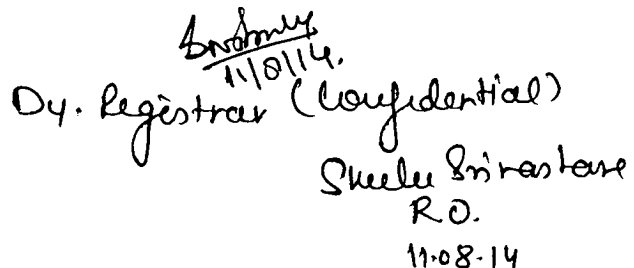 11/8/14.
Dy. Registrar (Confidential)
Srivastava
R.O.
11.08.14